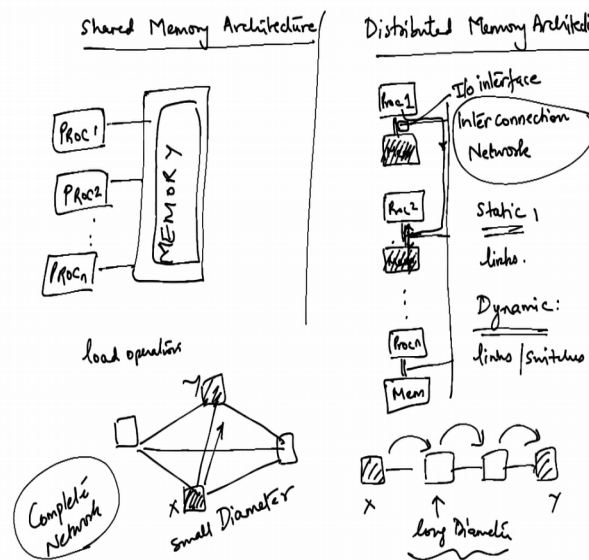 Shared Memory Architecture
PROC1
PROC2
PROCn
MEMORY
load operations
Y
X
Complete
Network
small Diameter
Distributed Memory Architectu
Proc1
I/o interface
Inter connection
Network
Proc2
Static :
links.
Dynamic:
links / switches
Procn
Mem
X
Y
long Diameter